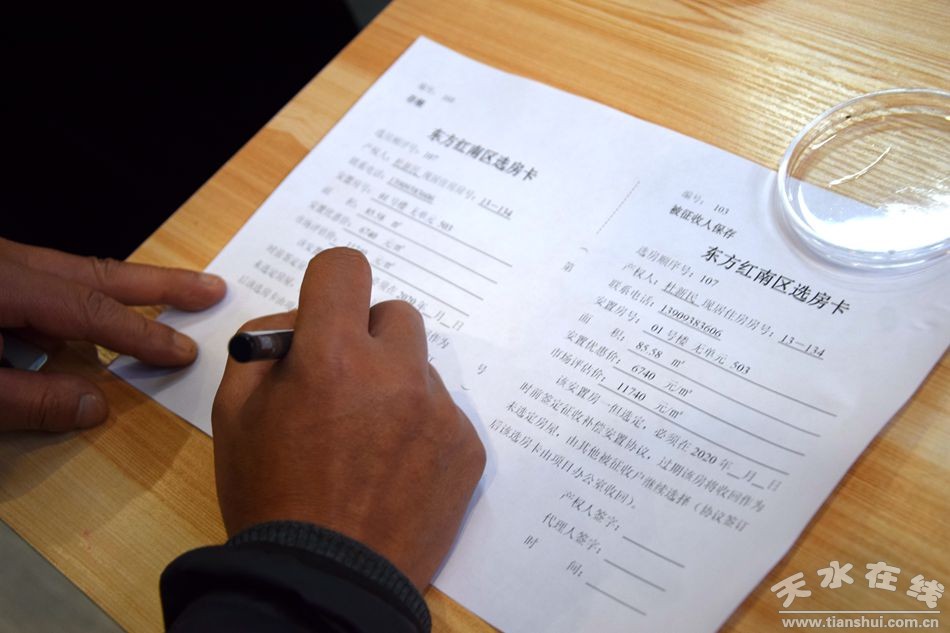 编号： 103
存根
东方红南区选房卡
选房顺序号：107
产权人：杜新民 现居住房房号：13—134
联系电话：13909383606
安置房号：01号楼 无单元 503
面 积： 85.58 ㎡
安置优惠价： 6740 元/㎡
市场评估价：
元/㎡
在2020年__月__日
第
号
编号： 103
被征收人保存
东方红南区选房卡
选房顺序号：107
产权人：杜新民 现居住房房号：13—134
联系电话：13909383606
安置房号： 01号楼 无单元 503
面 积： 85.58 ㎡
安置优惠价： 6740 元/㎡
市场评估价： 11740 元/㎡
该安置房一但选定，必须在2020年__月__日
时前签定征收补偿安置协议，过期该房将收回作为
未选定房屋，由其他被征收户继续选择（协议签订
后该选房卡由项目办公室收回）。
产权人签字：
代理人签字：
时 间：
天水在线
www.tianshui.com.cn